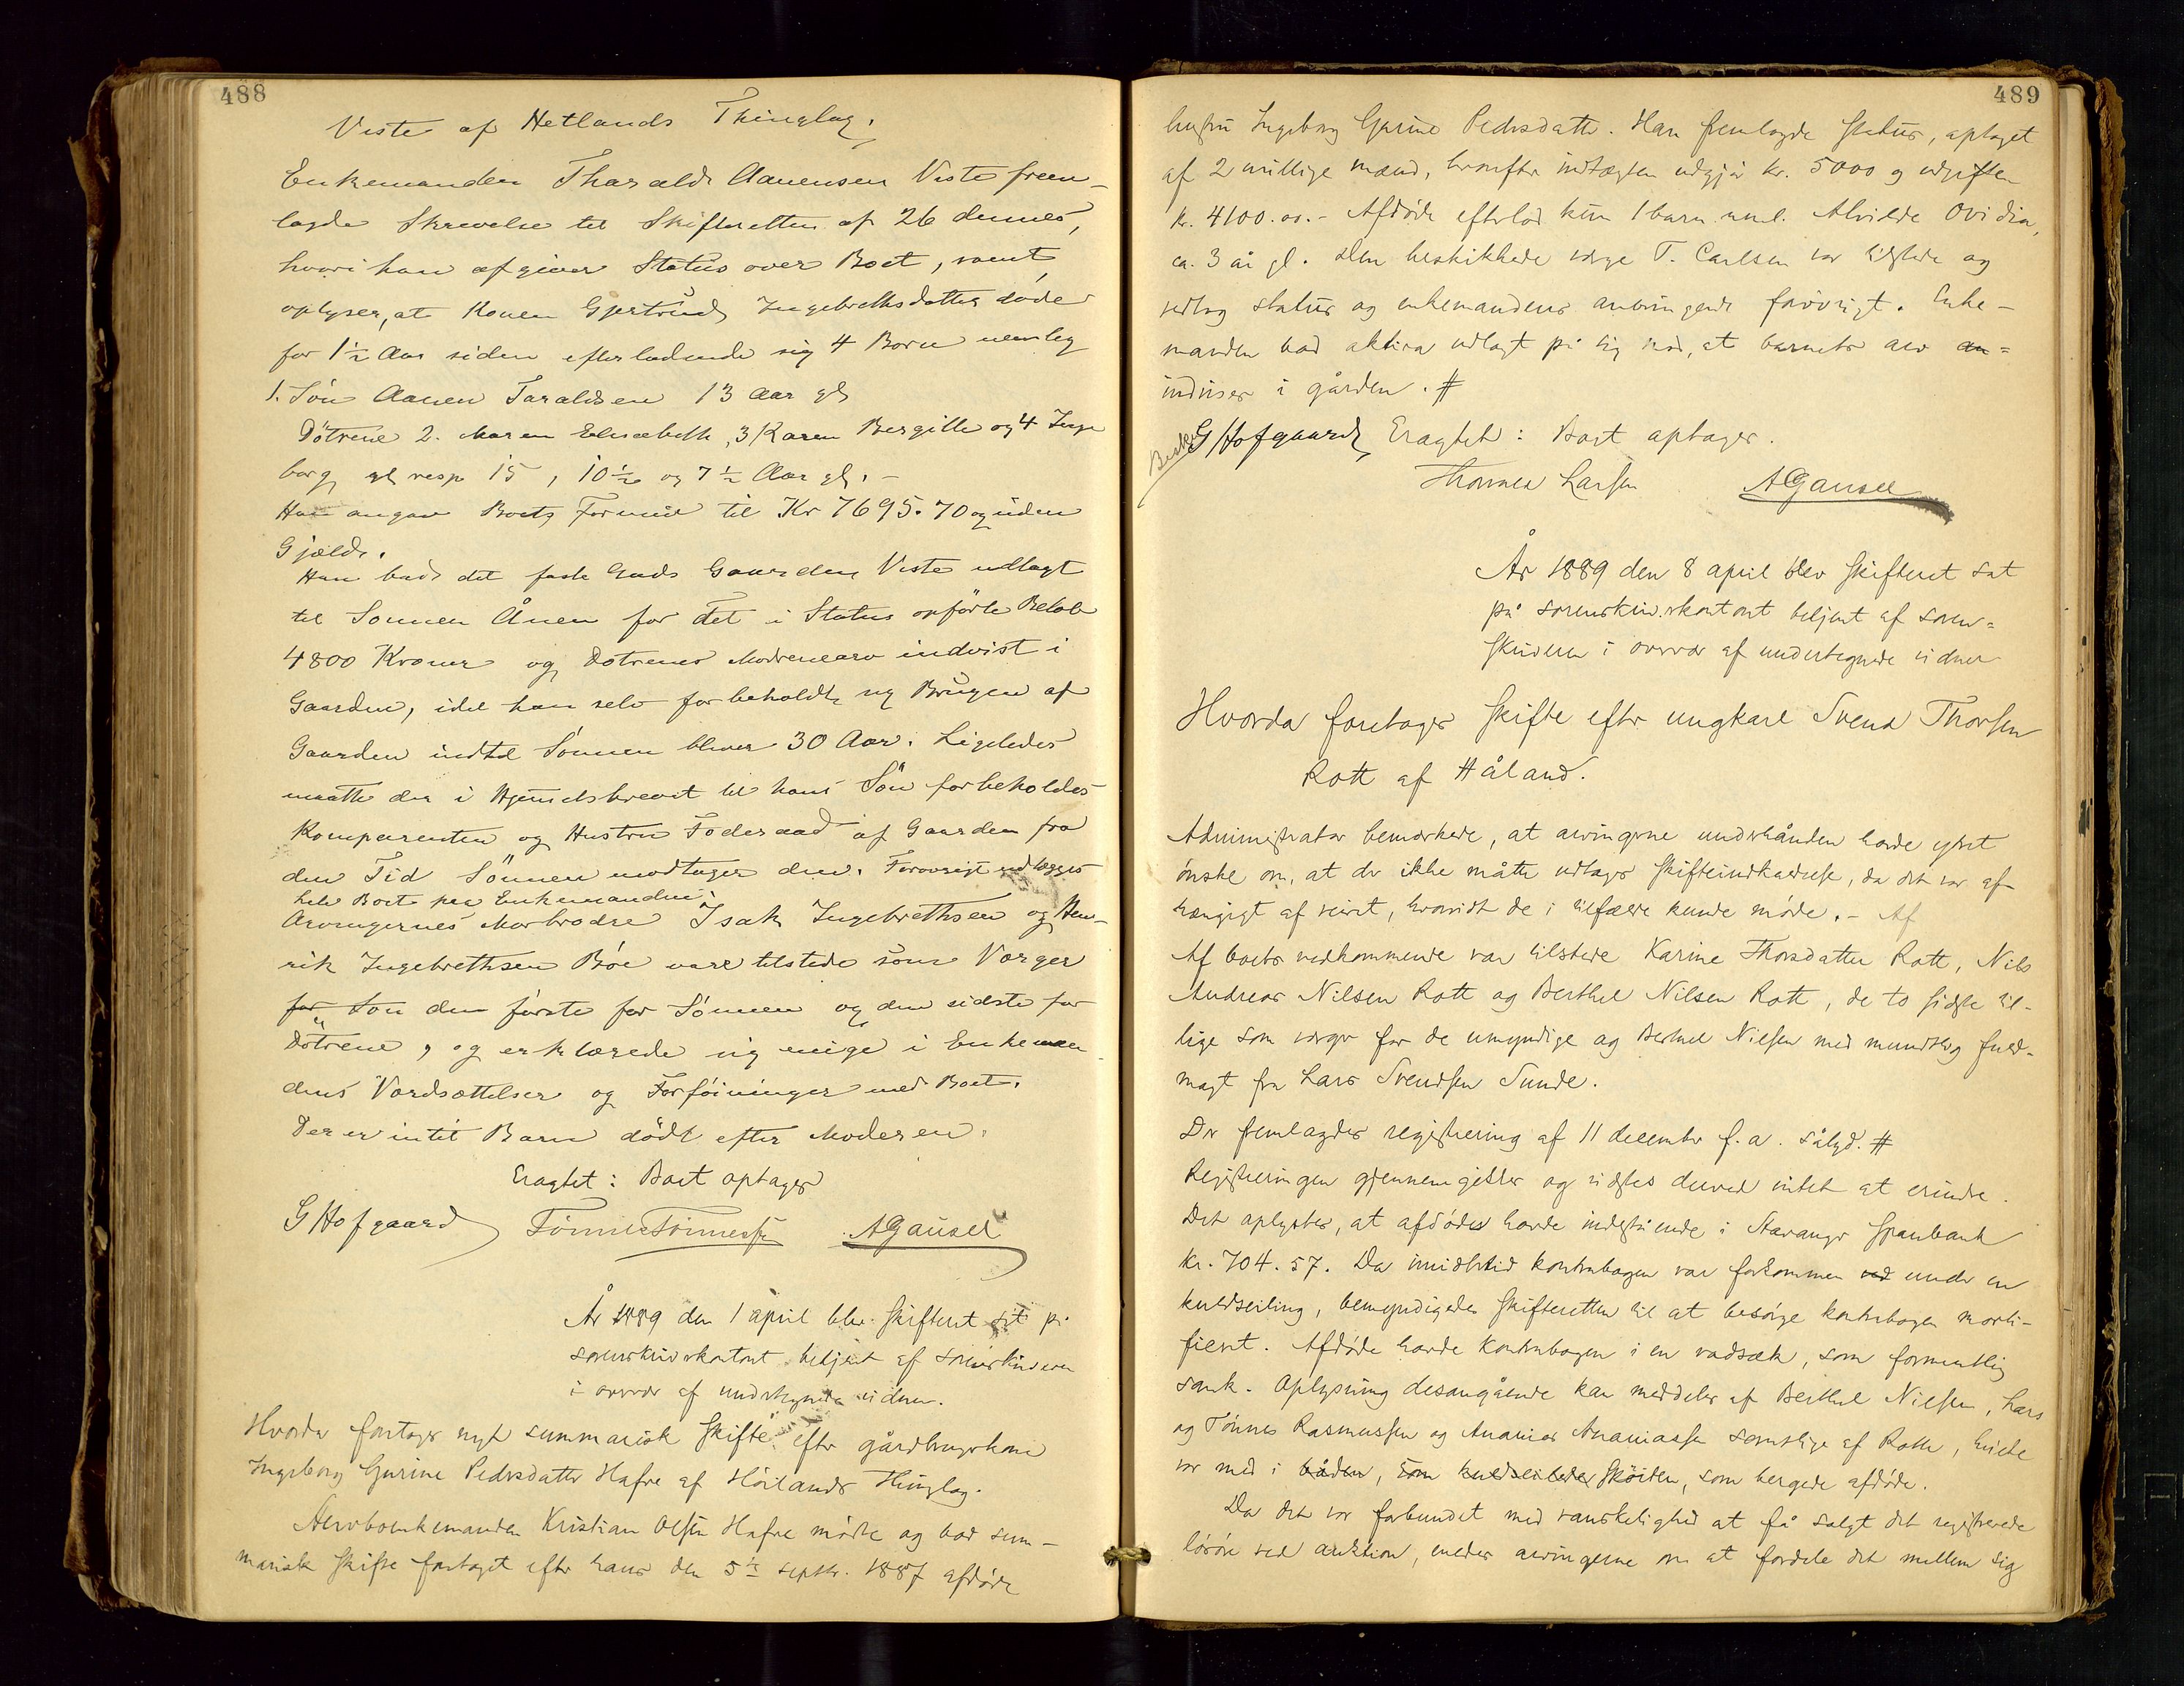 488
Viste af Hetlands Thinglag.
Enkemanden Tharald Aanensen Viste frem-
lagde Skrivelse til Skifteretten af 26 dennes,
hvori han afgiver Status over Boet, samt
oplyser, at Konen Gjertrud Ingebrethsdatter døde
for 1½ Aar siden efterladende sig 4 Børn nemlig
1. Søn Aanen Taraldsen 13 Aar gl
Döttrene 2. Maren Elisabeth, 3 Karen Bergitte og 4 Inge
borg gl resp 15, 10½ og 7½ Aar gl. -
Han angav Boets Formue til Kr 7695.70 og uden
Gjæld.
Han bad det faste Gods Gaarden Viste udlagt
til Sönnen Ånen for det i Status opförte Beløb
4800 Kroner og Døtrenes Mødrenearv indvist i
Gaarden, idet han selv forbeholdt sig Brugen af
Gaarden indtil Sönnen bliver 30 Aar. Ligeledes
maatte der i Hjemelsbrevet til hans Sön forbeholdes
Komparenten og Hustru Föderaad af Gaarden fra
den Tid Sönnen modtager den. Forövrigt udlægges
hele Boet paa Enkemanden.
Arvingernes Morbrødre Isak Ingebrethsen og Hen-
rik Ingebrethsen Böe vare tilstede som Værger
for Søn den første for Sönnen og den sidste for
Döttrene, og erklærede sig enige i Enkeman
dens Værdsættelser og Forföininger med Boet.
Der er intet Barn dödt efter Moderen.
Eragtet: Boet optages
G Hofgaard Tönnes Tönnessen AGausel
År 1889 den 1 april blev skifteret sat på
sorenskriverkontoret betjent af sorenskriveren
i overvær af undertegnede vidner.
Hvorda foretoges nyt summarisk skifte efter gårdbrugerkone
Ingeborg Gurine Pedersdatter Hafre af Höilands thinglag.
Arvboenkemanden Kristian Olsen Hafre mødte og bad sum-
marisk skifte foretaget efter hans den 5te septbr. 1887 afdøde
489
hustru Ingeborg Gurine Pedersdatter. Han fremlagde status, optaget
af 2 uvillige mænd, hvorefter indtægten udgjør kr. 5000 og udgiften
kr. 4100.00.- Afdøde efterlod kun 1 barn neml. Alvilde Ovidia,
ca. 3 år gl. Den beskikkede værge T. Carlsen var tilstede og
vedtog status og enkemandens anbringende forövrigt. Enke-
manden bad aktiva udlagt på sig mod, at barnets arv an=
indvises i gården. #
G Hofgaard Eragtet: Boet optages.
Thomas Larsen AGausel
År 1889 den 8 april blev skifteret sat
på sorenskriverkontoret betjent af soren=
skriveren i overvær af undertegnede vidner
Hvorda foretoges skifte efter ungkarl Svend Thorsen
Rott af Håland.
Administrator bemærkede, at arvingerne underhånden havde ytret
ønske om, at der ikke måtte udtages skifteindkaldelse, da det var af-
hængigt af veiret, hvorvidt de i tilfælde kunde møde. - Af
Af boets vedkommende var tilstede Karine Thorsdatter Rott, Nils
Andreas Nilsen Rott og Berthel Nilsen Rott, de to sidste til-
lige som værger for de umyndige og Berthel Nilsen med mundtlig fuld-
magt fra Lars Svendsen Sunde.
Der fremlagdes registrering af 11 december f.a. sålyd. #
Registreringen gjennemgikkes og vidstes derved intet at erindre.
Det oplystes, at afdøde havde indestående i Stavanger Sparebank
kr. 704.57. Da imidlertid kontrabogen var forkommen ved under en
kuldseiling, bemyndigedes skifteretten til at besørge kontrabogen morti-
ficeret. Afdøde havde kontrabogen i en vadsæk, som formentlig
sank. Oplysning desangående kan meddeles af Berthel Nilsen, Lars
og Tönnes Rasmussen og Ananias Ananiassen samtlige af Rott, hvilke
var med i båden, som kuldseilede skøiten, som bergede afdøde.
Da det var forbundet med vanskelighed at få solgt det registrerede
løsøre ved auktion, enedes arvingerne om at fordele det mellem sig